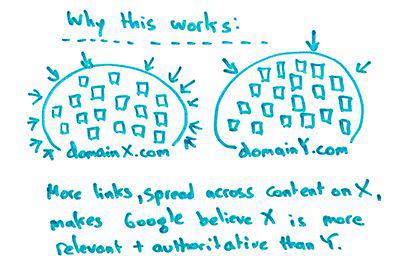 Why this works:
domainX.com
domainY.com
More links, spread across content on X,
makes Google believe X is more
relevant + authoritative than Y.